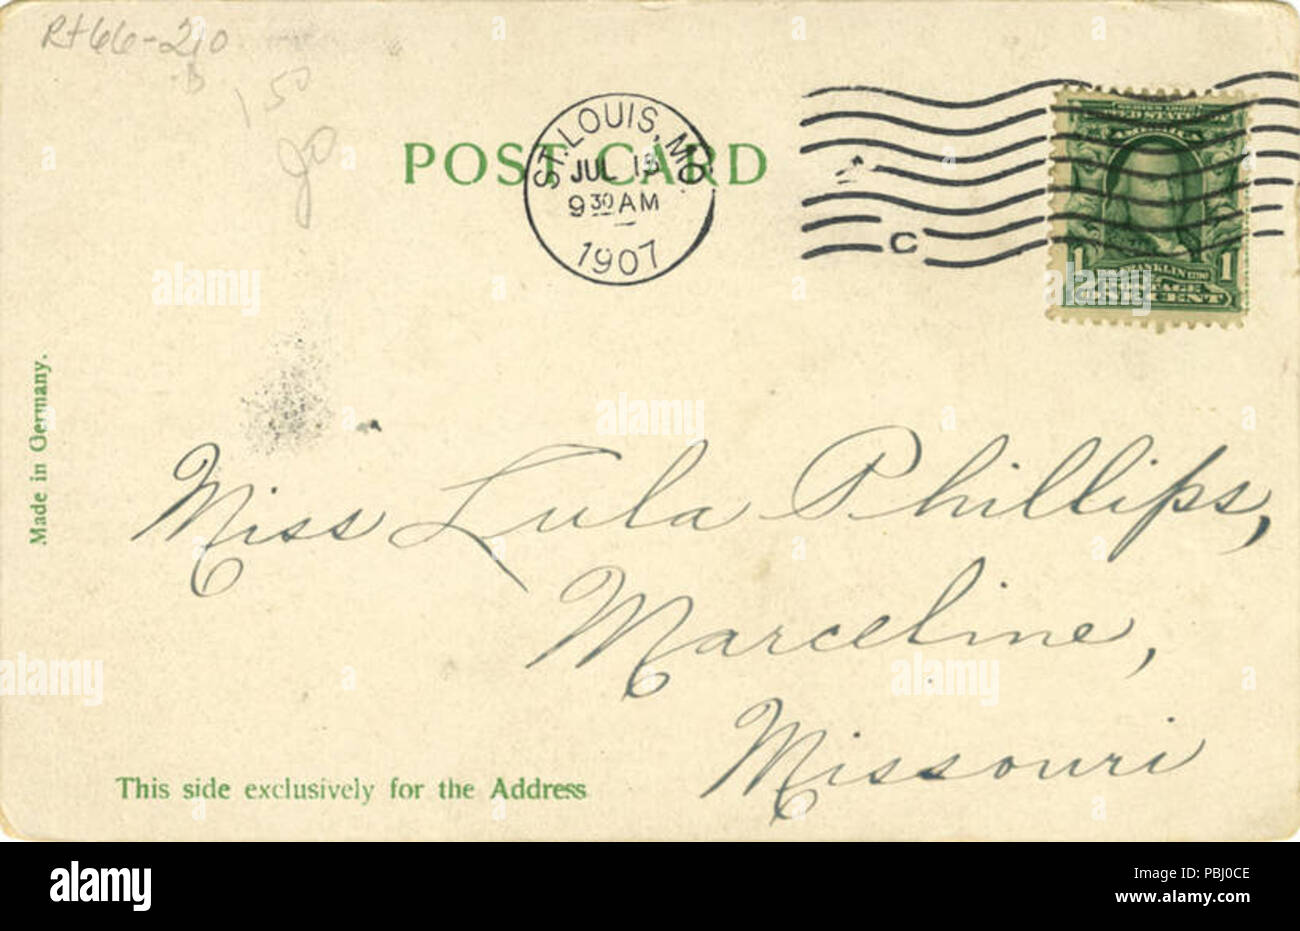 Rt66-210
B
150
POST CARD
ST. LOUIS, MO.
JUL 15
9 30 AM
1907
C
UNITED STATES OF
AMERICA
1 FRANKLIN 1790 1
POSTAGE
ONE CENT
Made in Germany.
Miss Lula Phillips,
Marceline,
Missouri
This side exclusively for the Address
alamy
a
alamy
Image ID: PBJ0CE
www.alamy.com